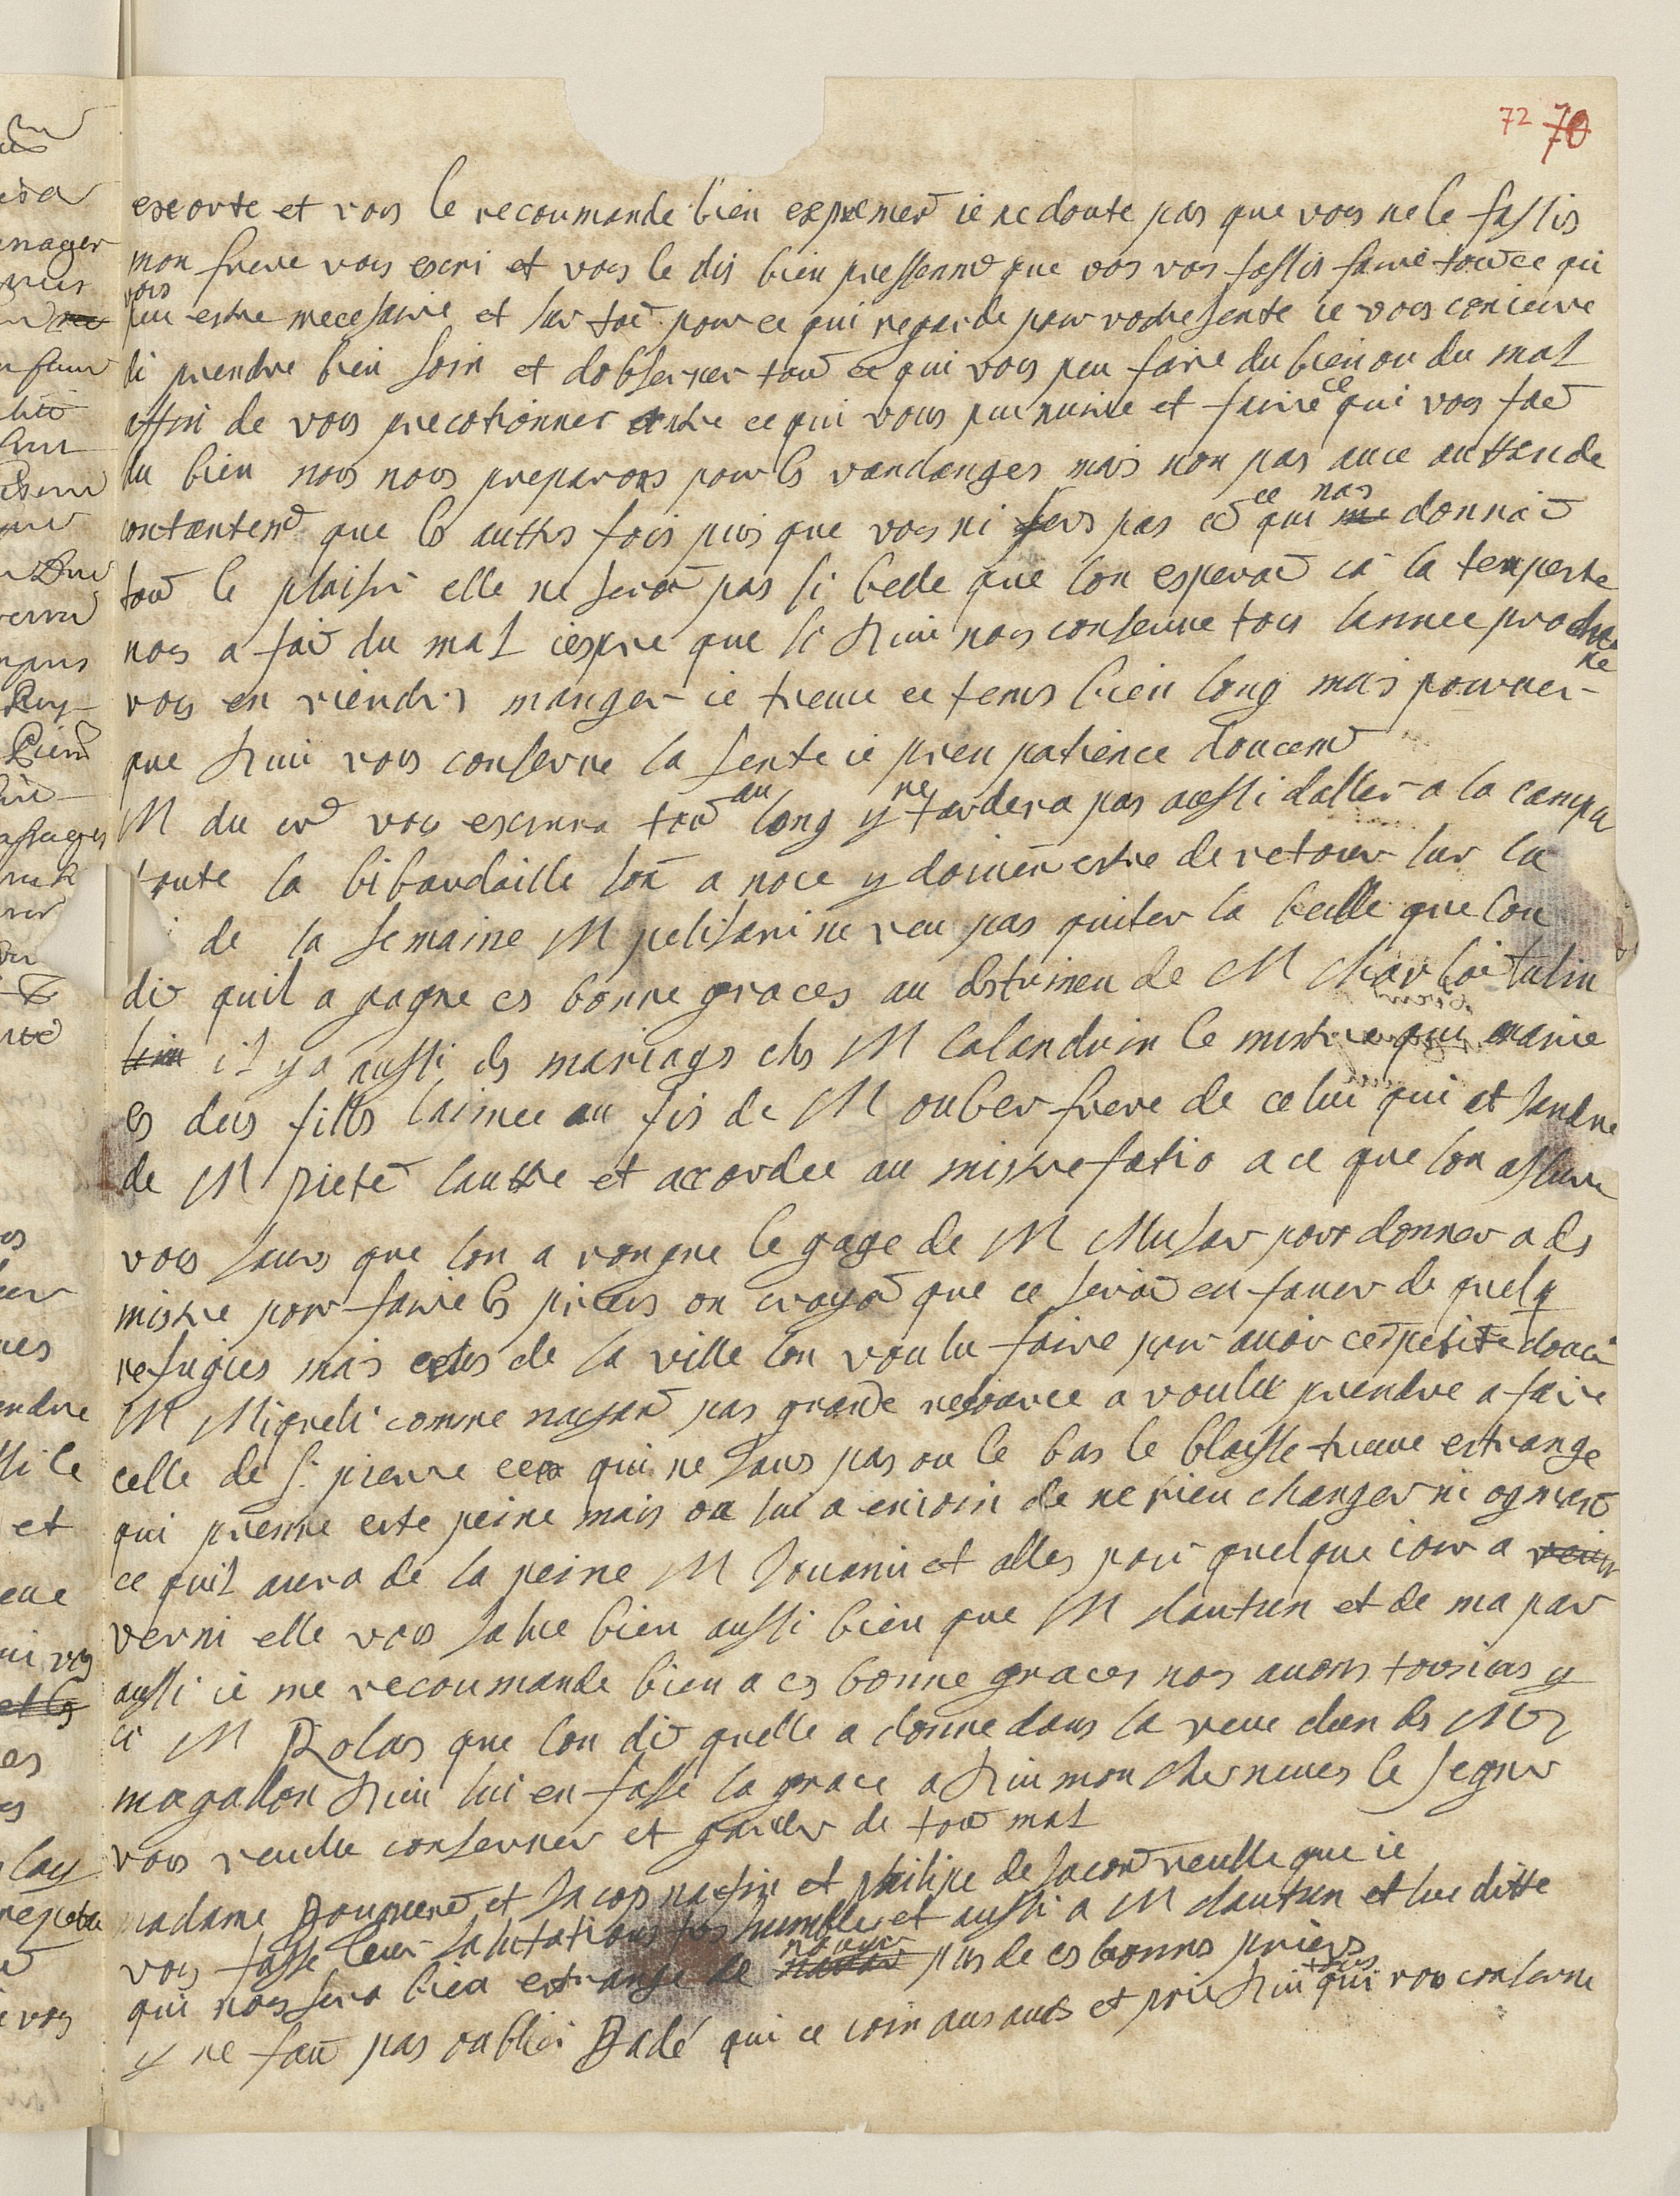 72 70
exorte et vous le recoumande bien expremet ie ne doute pas que vous ne le fassis
mon frere vous escri et vous le dis bien pressenmt que vos vos fassis faire tout ce qui
vous
peu estre necesaire et sur tou pour ce qui regarde pour vostre sente ie vous coniure
di prendre bien soin et dobserver tout ce qui vous peu faire du bien ou du mal
affin de vous precotionner contre ce qui vous peu nuire et faire ce qui vous fact
du bien nous nous preparons pour ls vandanges mais non pas avec auttan de
contantemt que ls auttrs fois puis que vous ni sers pas cet ce qui me nos donnait
tout le plaisir elle ne sera pas si belle que lon esperait ca la temperte
nous a fait du mal iespere que si Dieu nous conserve tous lannee prochene
vous en viendrs manger ie treuve ce tems bien long mais pourveu
que Dieu vous conserve la sente ie pren patience doucemt
M du vous escrira tout au long y ne tardera pas aussi daller a la campa
toute la bibaudaille son a noce y doiven estre de retour sur la
de la semaine M pelisari ne veu pas quiter la belle que lon
dit quil a gagne es bonne graces au detrimen de M charlot tulin
il y a aussi ds mariags chs M Calandrin le mistre qui marie
es deus fills laimee au fis de M ouber frere de celui qui et sandre
de M pictet lauttre et accordee au mistre fatio a ce que lon assure
vous saurs que lon a rongne le gage de M Musar pour donner a ds
mistre pour faire ls priers on croyot que ce serait en faver de quelq
refugies mais cels de la ville lon voulu faire pour avoir cet petite douce
M Migreli comme nayant pas grande a voulu prendre a faire
celle de St pierre ceux qui ne saus pas ou le bas le blaisse treuve estrange
qui prenne cete peine mais on lui a enioin de ne rien changer ni ogmete
ce quil aura de la peine M Jouanin et alles pour quelque iour a
verni elle vous salue bien aussi bien que M dautun et de ma par
aussi ie me recoumande bien a es bonne graces nos avons tousiours y
ci M Rolas que lon dit quelle a donne dans la veue dun ds Mrs
magallon Dieu lui en fasse la grace a Dieu mon cher neveu le segner
vous veulie conserver et garder de tout mal
madame et Jacop et philipe de veulle que ie
vous fasse leur salutations trs humbles et aussi a M dautun et lui ditte
qui nous sera bien estrange de navoir nouyr pas de es bonnes priers
y ne fau pas oublier Dadé qui ce coin aus auts et prie Dieu qui vous conserve